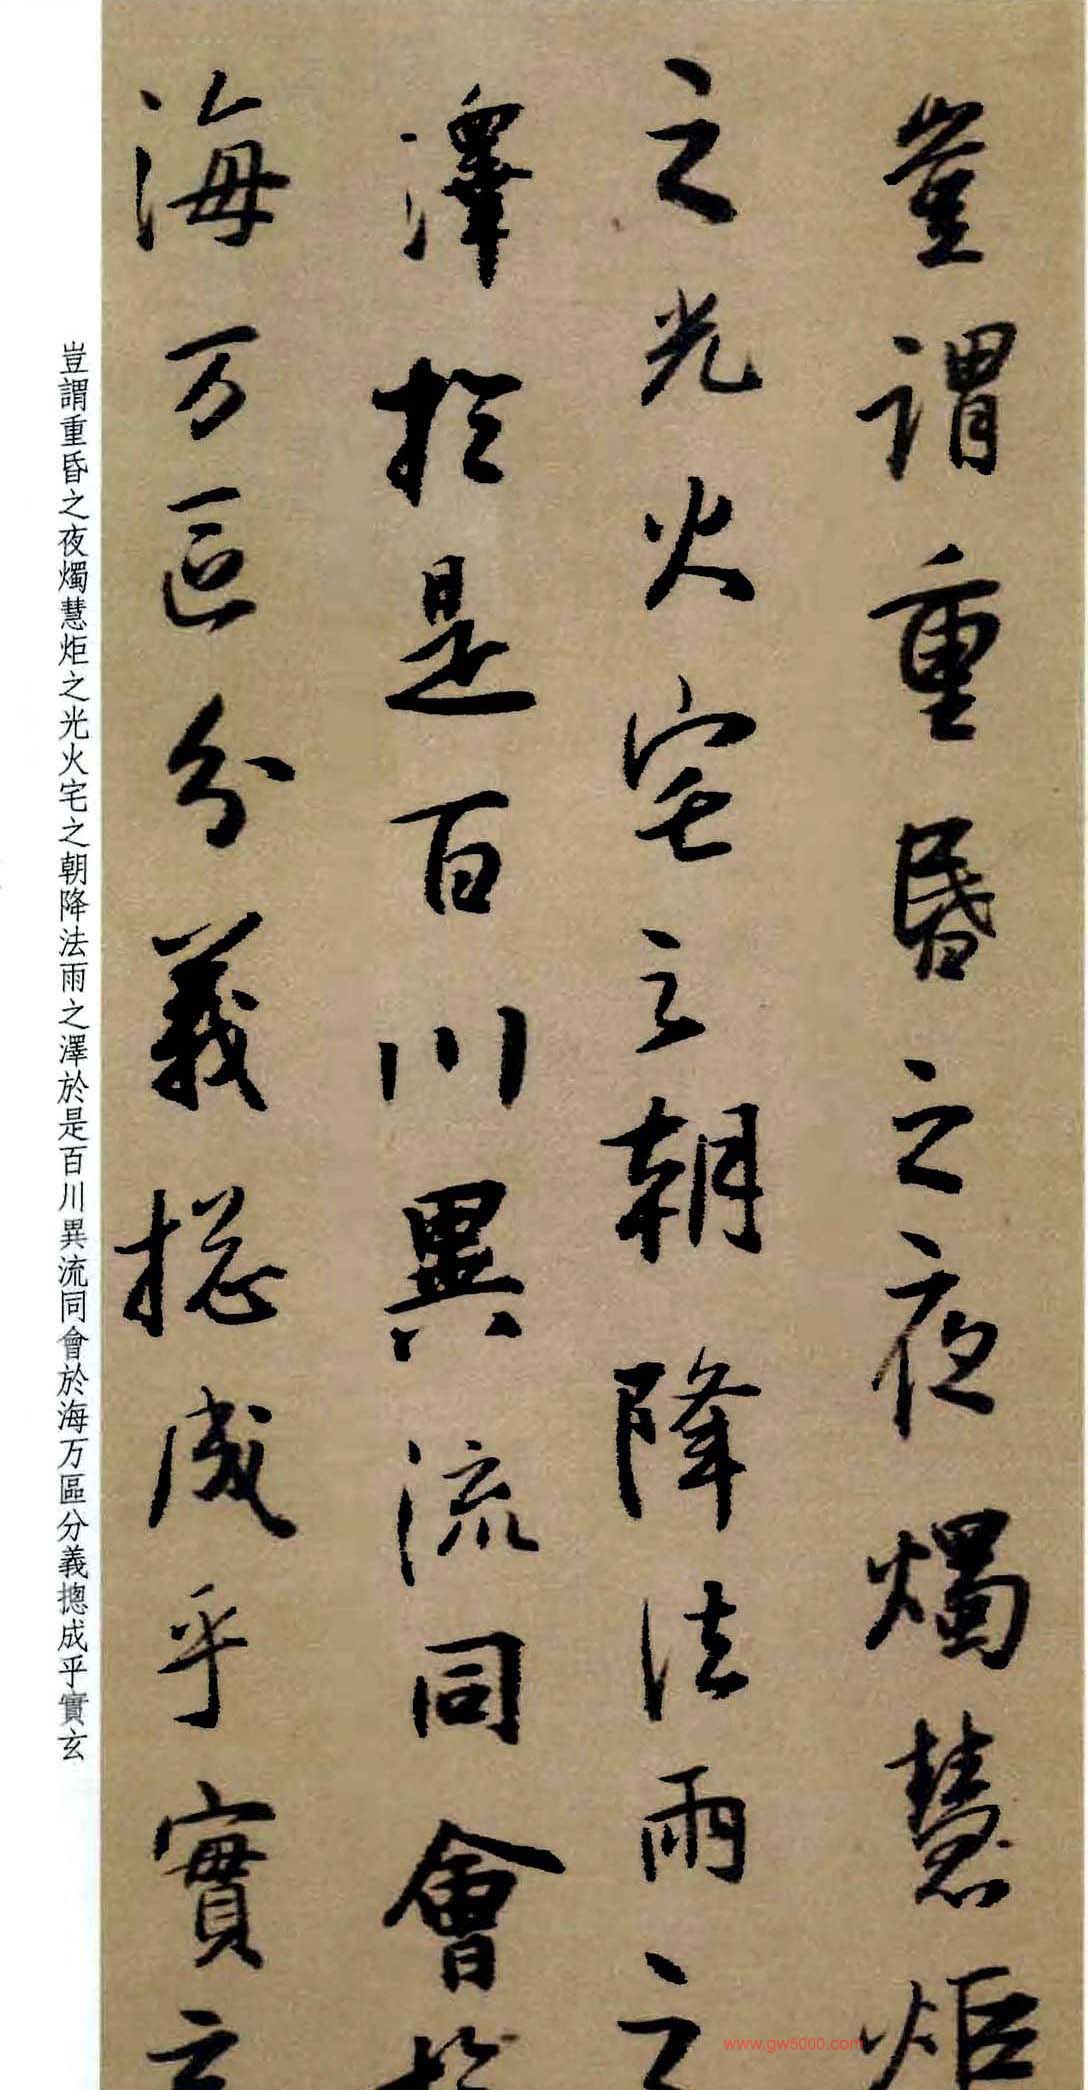 豈謂重昏之夜燭慧炬
之光火宅之朝降法雨之
澤於是百川異流同會於
海万區分義揔成乎實玄
豈謂重昏之夜燭慧炬之光火宅之朝降法雨之澤於是百川異流同會於海万區分義摠成乎實玄
www.gw5000.com